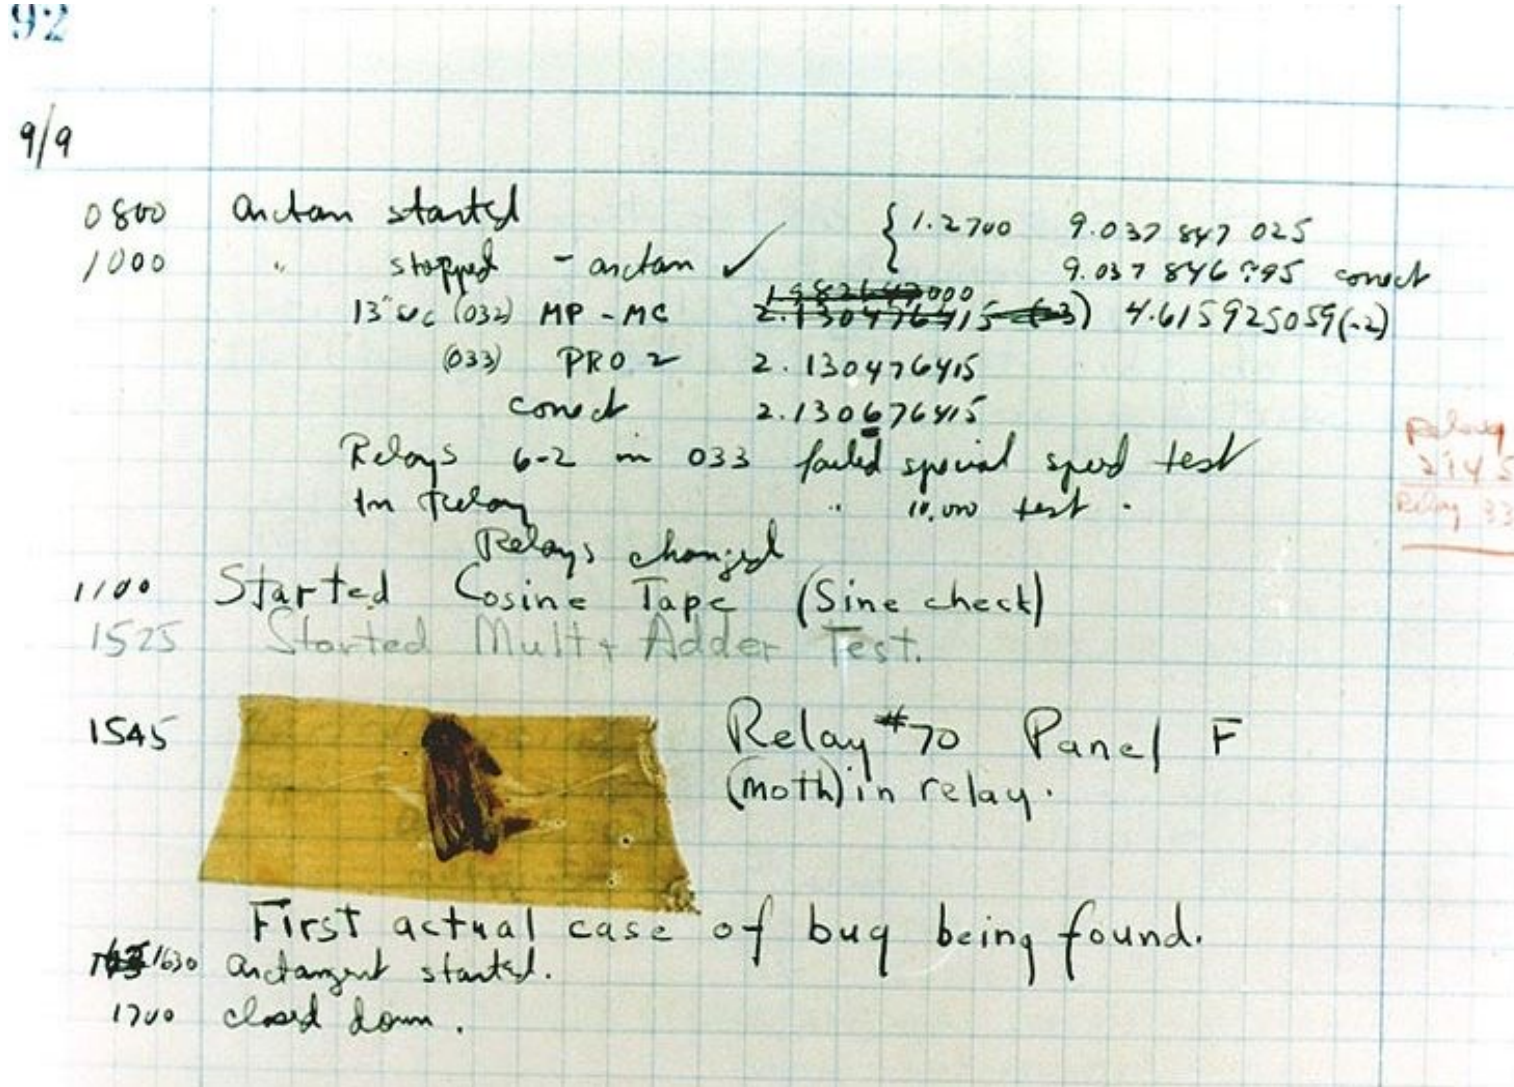 92
9/9
0800 arctan started { 1.2700 9.037 847 025
1000 " stopped - arctan ✓ 9.037 846 995 correct
1982647000
13"uc (032) MP - MC 2.130476415 (-3) 4.615925059(-2)
(033) PRO 2 2.130476415
correct 2.130676415
Relays 6-2 in 033 failed special speed test
In relay " 10,000 test .
Relays changed
1100 Started Cosine Tape (Sine check)
1525 Started Mult + Adder Test.
1545 Relay #70 Panel F
(moth) in relay.
First actual case of bug being found.
1630 arctangent started.
1700 closed down.
Relay
Relay 33